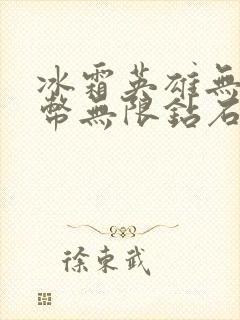 冰霜英雄無
幣無限鉆石
徐東武